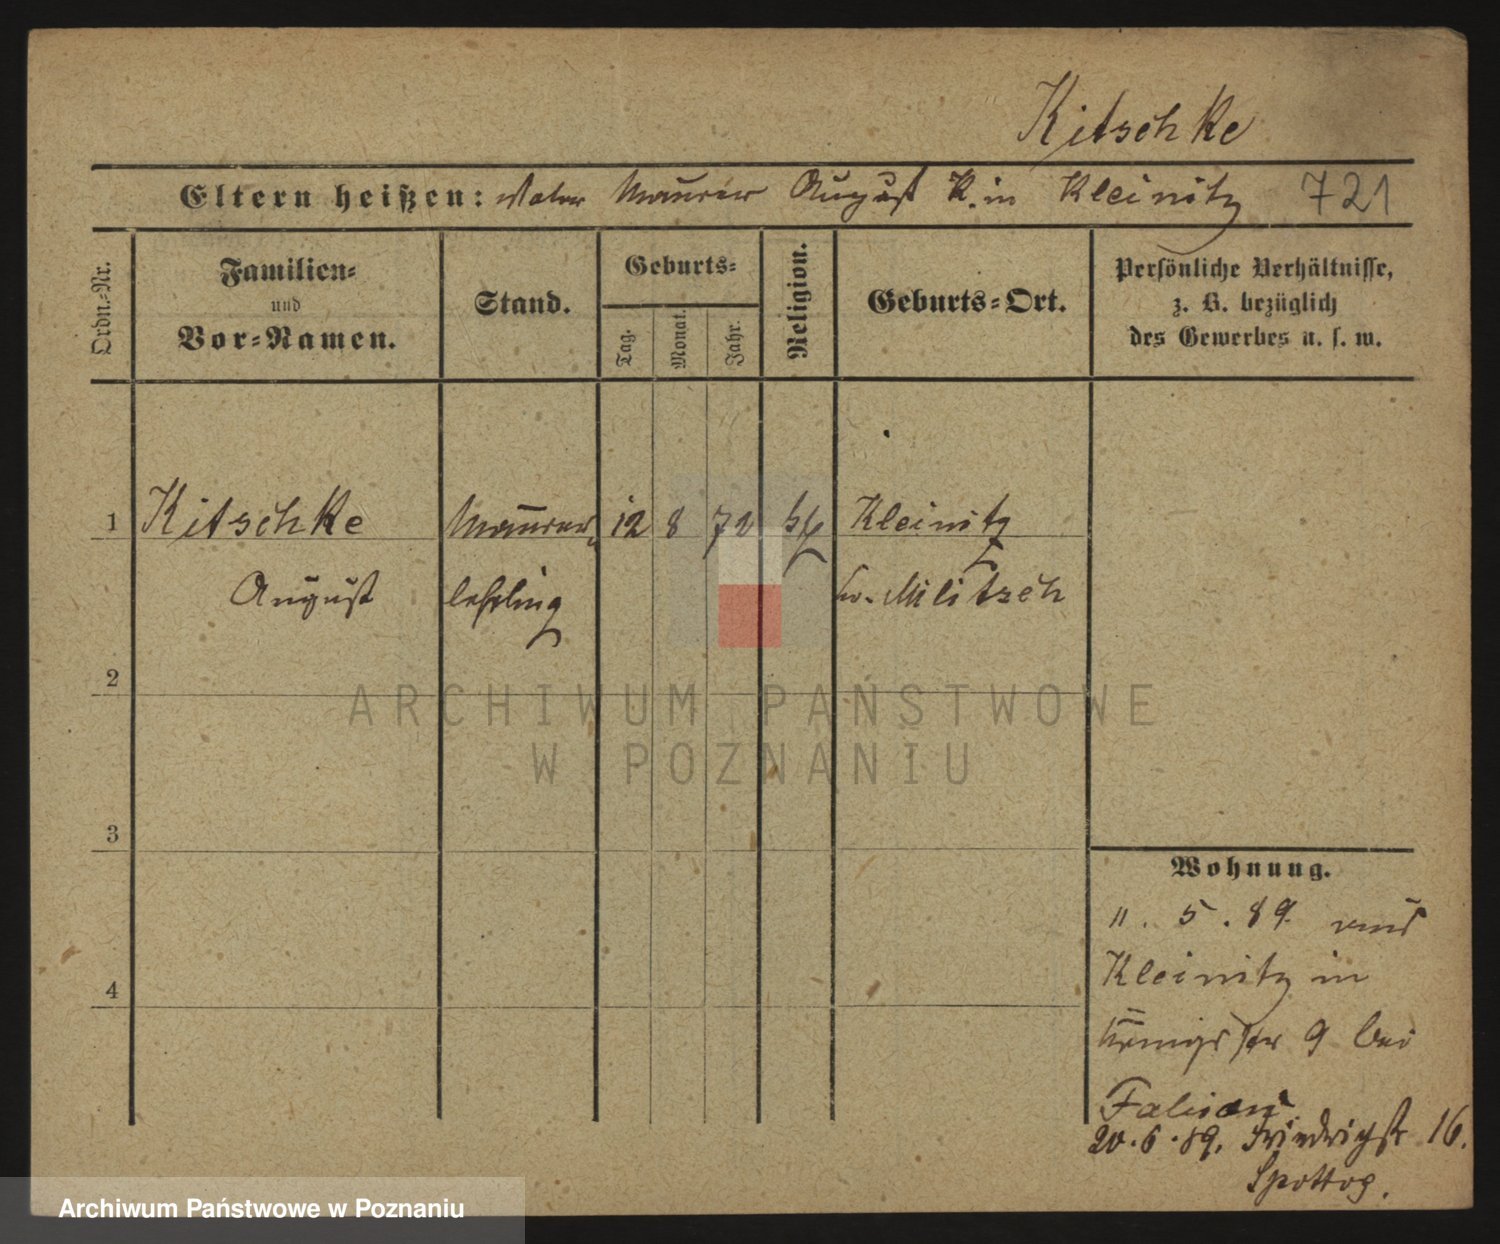 Kitschke
Eltern heißen: Vater Maurer August K. in Kleinitz 721
Ordn.-Nr.
Familien-
und
Vor-Namen.
Stand.
Geburts-
Tag.
Monat.
Jahr.
Religion.
Geburts-Ort.
Persönliche Verhältnisse,
z. B. bezüglich
des Gewerbes u. s. w.
1 Kitschke Maurer- 12 8 72 Kleinitz
August lehrling Kr. Militsch
2
3
4
Wohnung.
11. 5. 89 aus
Kleinitz in
Königstr 9 bei
Fabian
20. 6. 89. Friedrichstr 16.
Spottog.
ARCHIWUM PAŃSTWOWE
W POZNANIU
Archiwum Państwowe w Poznaniu